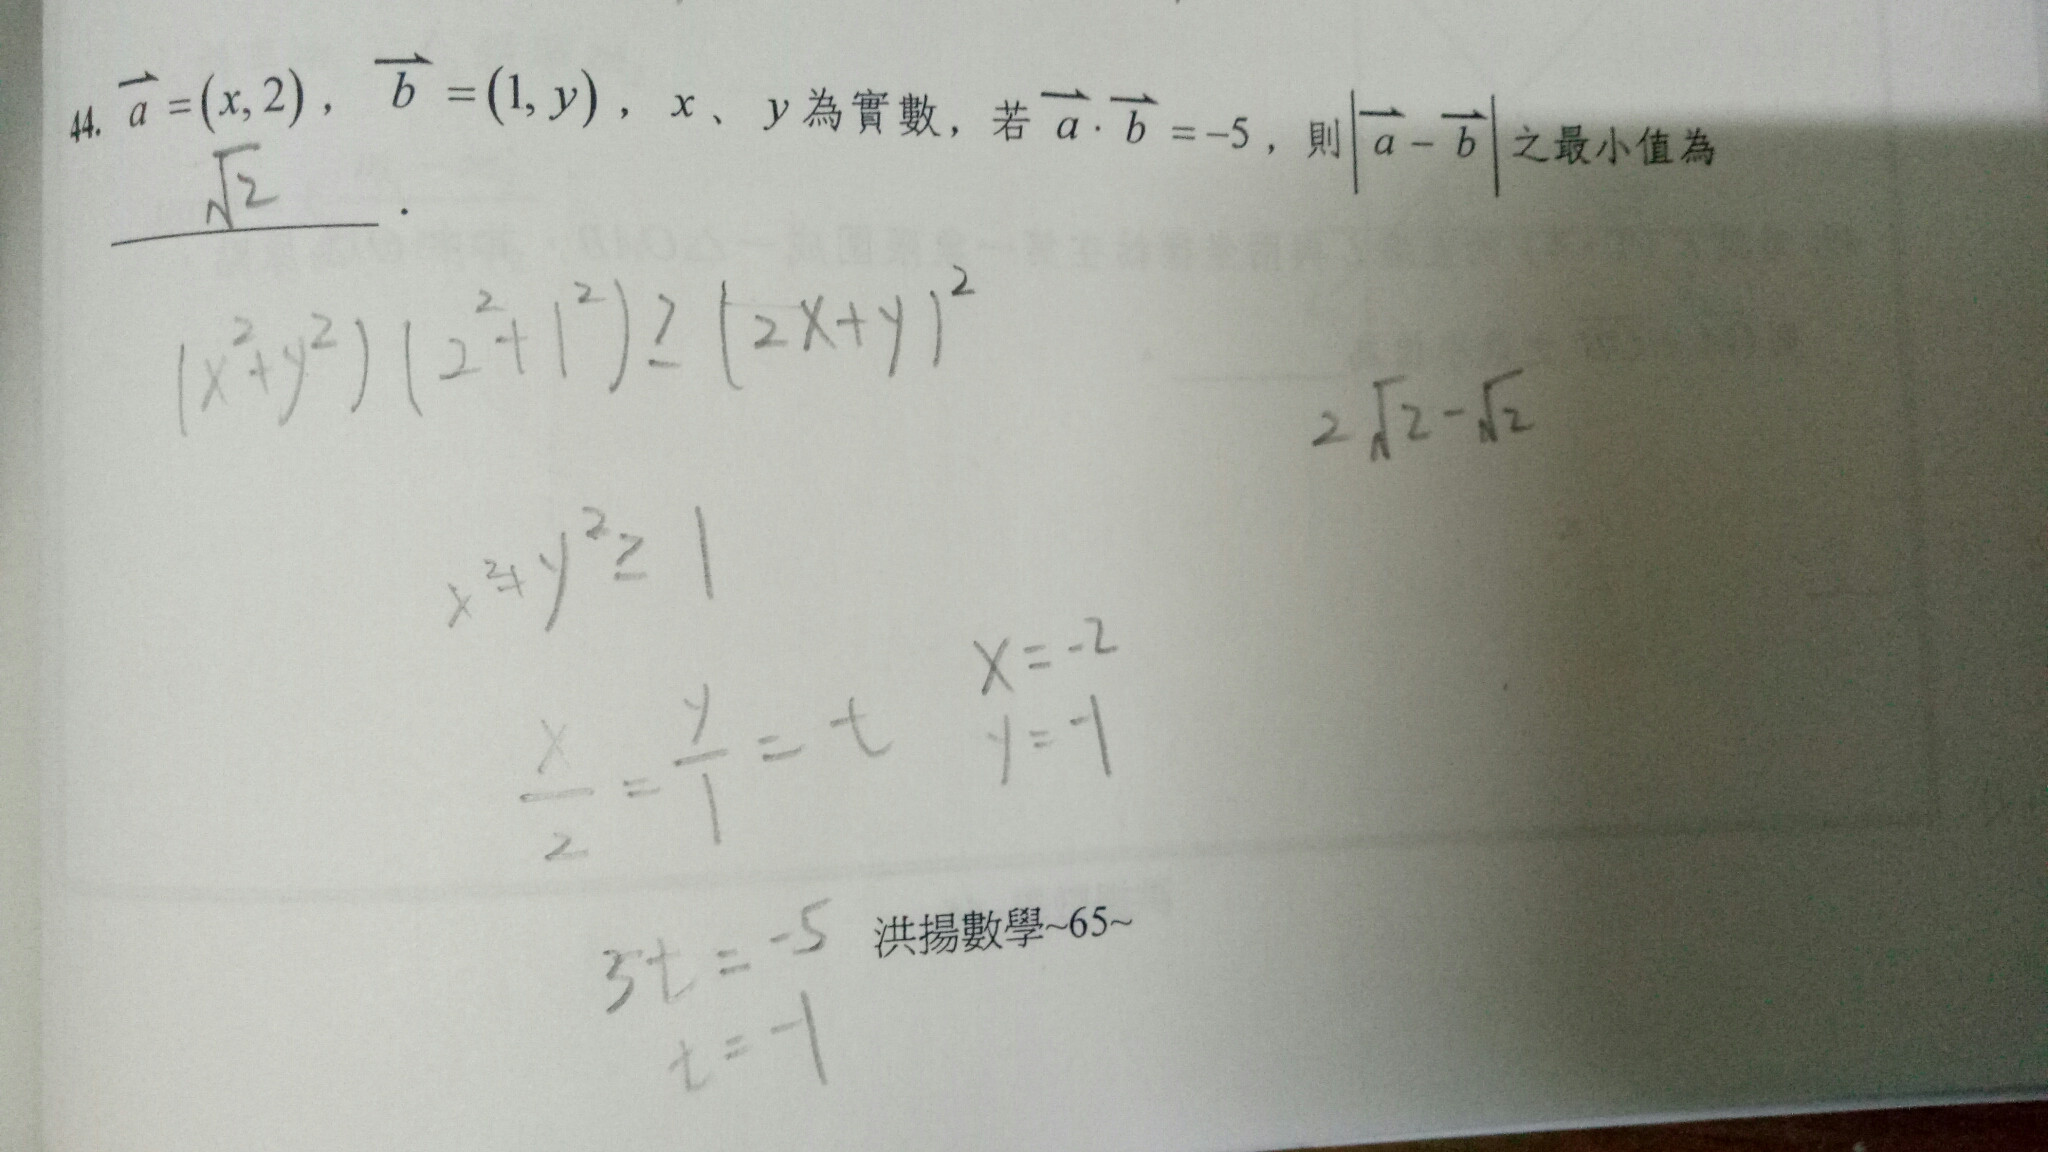 44. a = (x, 2), b = (1, y), x、y為實數，若 a · b = -5，則 |a - b| 之最小值為
√2 .
(x²+y²)(2²+1²) ≥ (2x+y)²
2√2-√2
x²+y² ≥ 1
x/2 = y/1 = t
x=-2
y=-1
5t = -5
t = -1
洪揚數學~65~